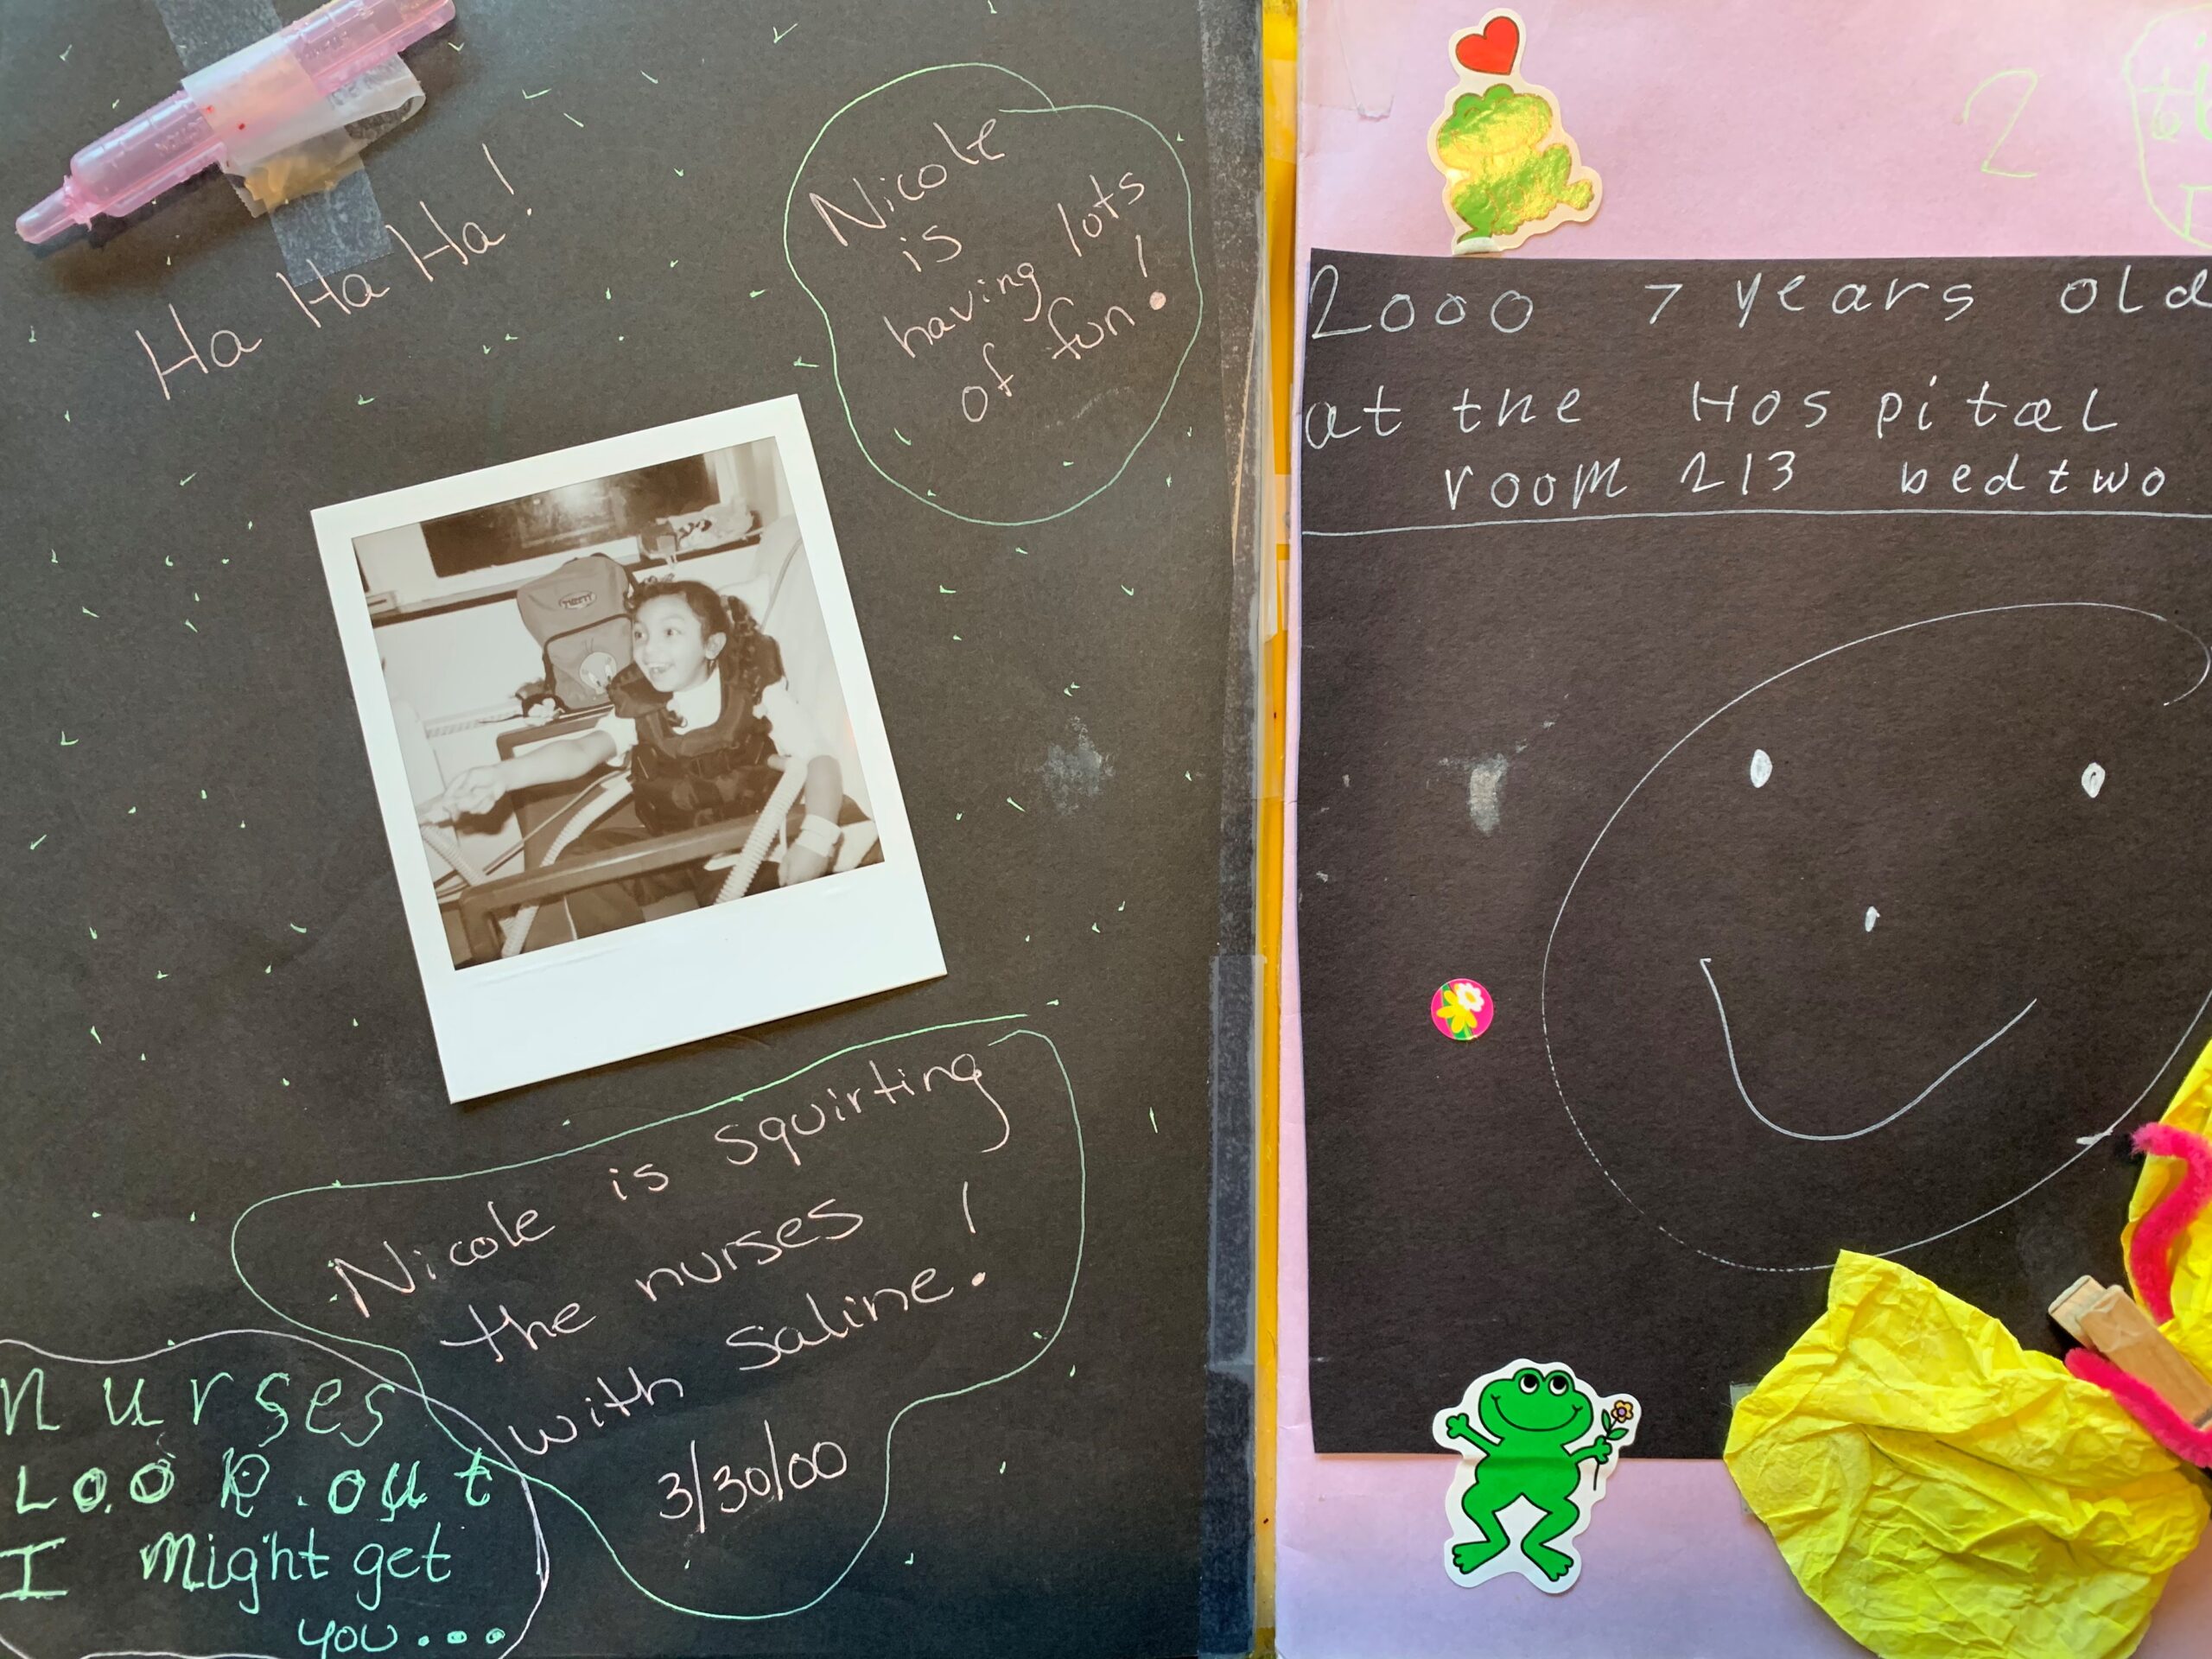 Ha Ha Ha!
Nicole
is
having lots
of fun!
Nicole is squirting
the nurses !
with saline.
3/30/00
nurses
LOOK.out
I might get
you...
2
2000 7 years old
at the Hospital
room 213 bed two